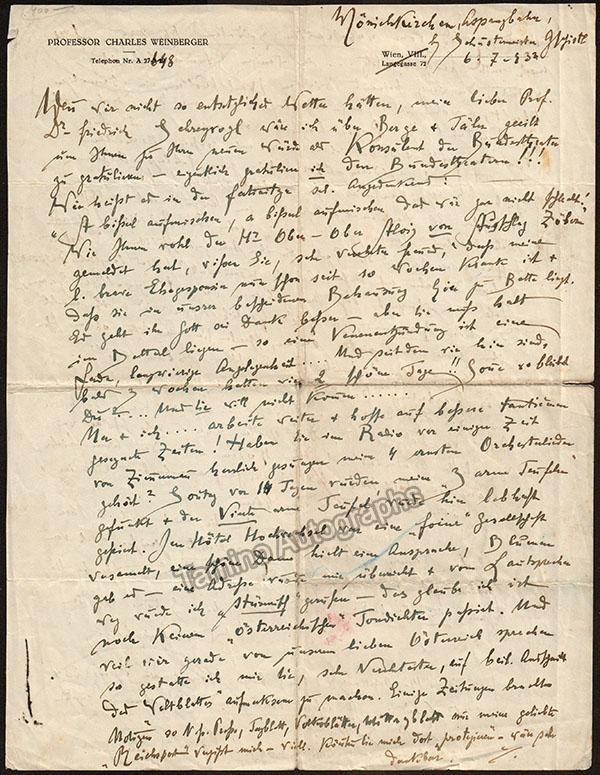 PROFESSOR CHARLES WEINBERGER
Telephon Nr. A 27
Wien, VIII.,
Langegasse 72
Mönichkirchen, Aspangbahn,
6. 7. 933
Wenn wir nicht so entsetzliches Wetter hätten, mein lieber Prof.
Dr Friedrich Schreyvogl wäre ich über Berge & Täler geeilt
um Ihnen zu Ihrer neuen Würde als Konsulent der Bundestheater
zu gratulieren — eigentlich gratuliere ich den Bundestheatern!!!
Wie heißt es in der
"A bissel aufmischen, a bissel aufmischen das wär gar nicht schlecht!
Wie Ihnen wohl der Hr Ober-Ober Alois von
gemeldet hat, wissen Sie, sehr verehrter Freund, daß meine
l. brave Ehegesponsin nun schon seit so Wochen krank ist &
daß sie in unserer bescheidenen Behausung hier zu Bette liegt.
Es geht ihr Gott sei Dank besser — aber sie muß halt
im Bettal liegen — so eine Venenentzündung ist eine
fade, langwierige Angelegenheit .... Und seitdem wir hier sind,
bald 3 Wochen hatten wir 2 schöne Tage!! Sonst
.... Und sie will nicht
& ich .... arbeite weiter & hoffe auf bessere tantiemen
gesegnete Zeiten! Haben Sie im Radio vor einiger Zeit
von Zimmermann herrlich gesungen meine 4 ernsten Orchesterlieder
gehört? Sonntag vor 14 Tagen wurden meine 3 arme Teufeln
gefunkt & der Vierte arme Teufel wurde hier lebhaft
gefeiert. Im Hôtel Hochwechsel war eine "feine" Gesellschaft
versammelt, eine schöne Dame hielt eine Ansprache, Blumen
gab es — eine Adresse wurde mir überreicht & vom Lautsprecher
weg wurde ich "stürmisch" gerufen — das glaube ich ist
noch keinem "österreichischen" Tondichter passiert. Und
weil wir gerade von unserem lieben Österreich sprechen
so gestatte ich mir Sie, sehr Verehrter, auf beil. Ausschnitt
des "Weltblattes" aufmerksam zu machen. Einige Zeitungen brachten
Notizen so N. fr. Presse, Tagblatt, Volksblätter, Mittagsblatt nur meine geliebte
"Reichspost" vergißt mich — will. Könnten Sie mich dort "protegieren" — wäre sehr
dankbar.
Tamino Autographs